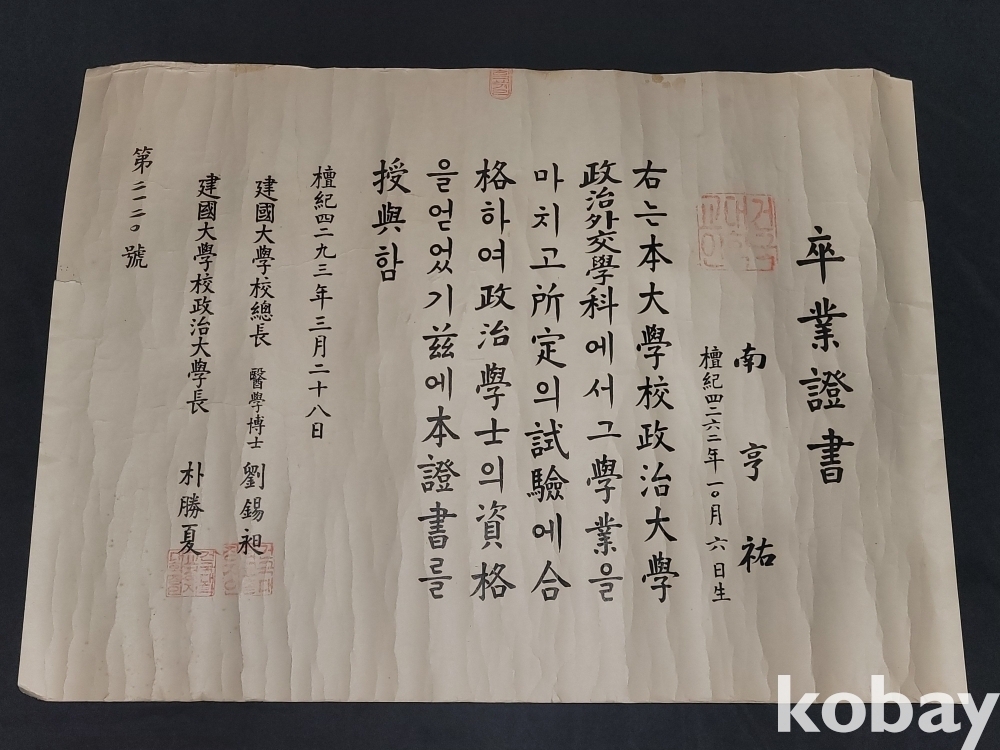 卒業證書
南亨祐
檀紀四二六二年一〇月六日生
右는本大學校政治大學
政治外交學科에서그學業을
마치고所定의試驗에合
格하여政治學士의資格
을얻었기玆에本證書를
授與함
檀紀四二九三年三月二十八日
建國大學校總長 醫學博士 劉錫昶
建國大學校政治大學長 朴勝夏
第二一二〇號
kobay